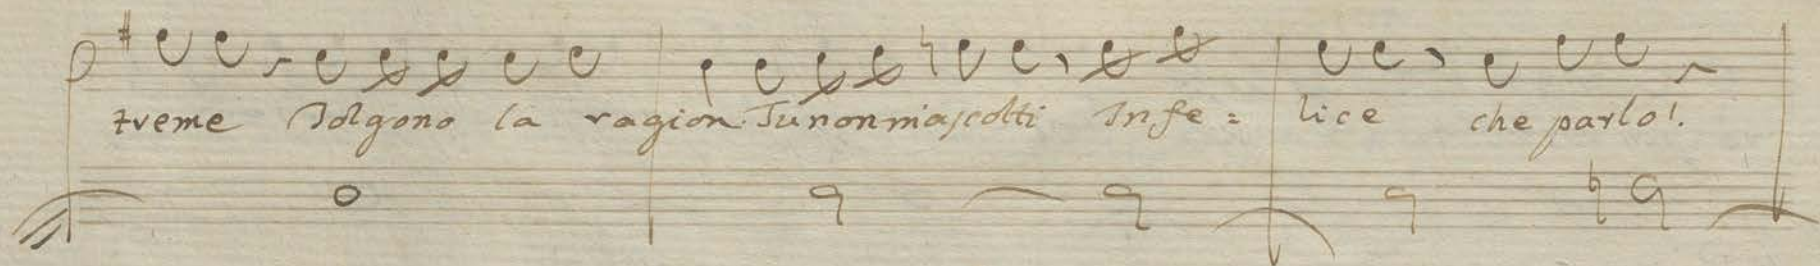 treme Tolgono la ragion. Tu non m'ascolti Infe = lice che parlo!.